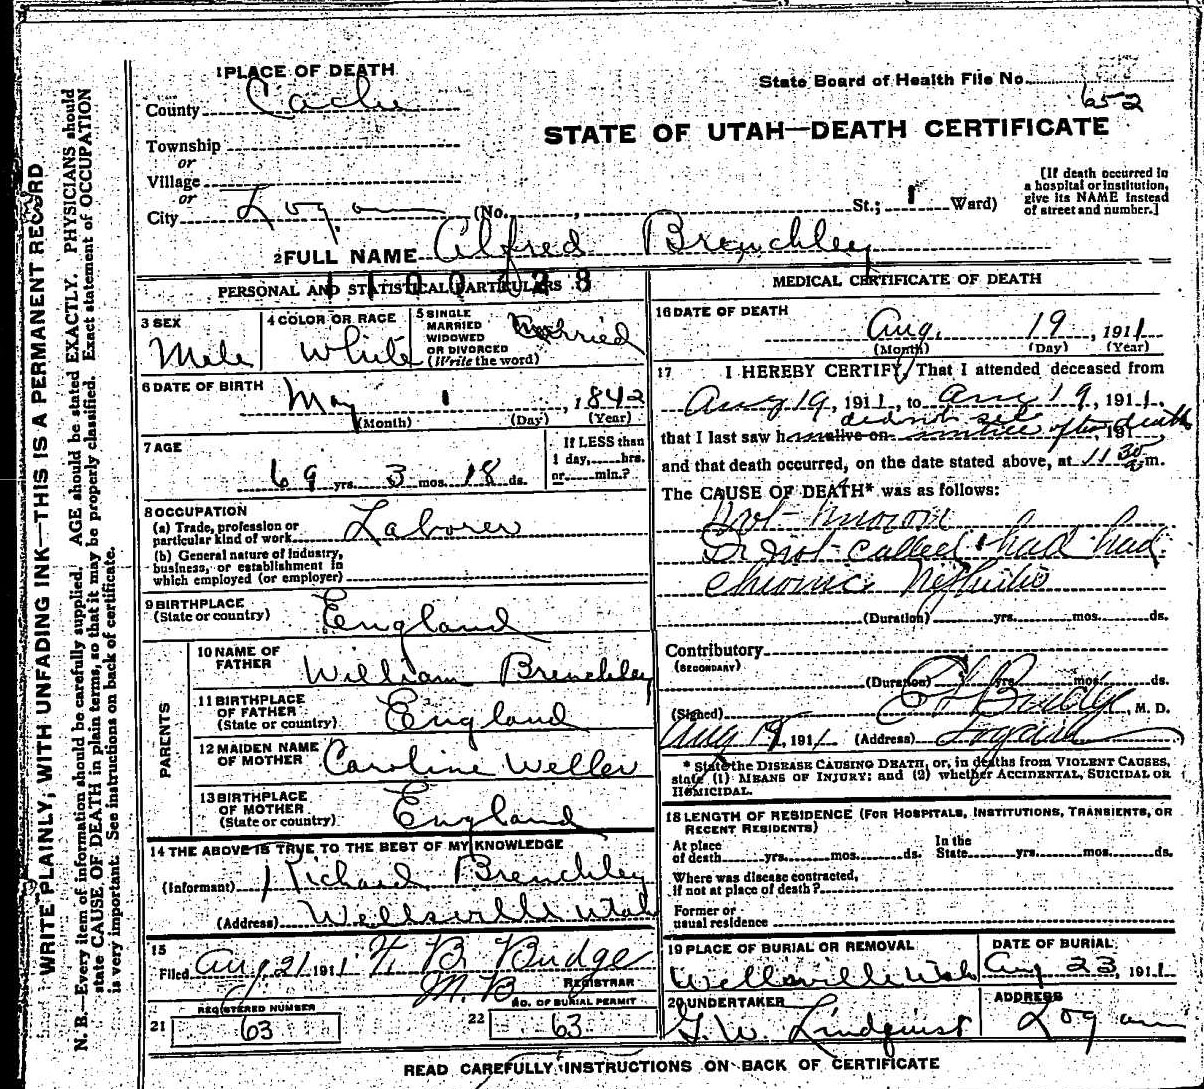 1 PLACE OF DEATH
County Cache
Township
or
Village
or
City Logan (No. , St.; 1 Ward)
State Board of Health File No. 652
STATE OF UTAH—DEATH CERTIFICATE
[If death occurred in
a hospital or institution,
give its NAME instead
of street and number.]
2 FULL NAME Alfred Brenchley
PERSONAL AND STATISTICAL PARTICULARS
3 SEX
Male
4 COLOR OR RACE
White
5 SINGLE
MARRIED
WIDOWED
OR DIVORCED
(Write the word)
Married
6 DATE OF BIRTH
May 1, 1842
(Month) (Day) (Year)
7 AGE
69 yrs. 3 mos. 18 ds.
If LESS than
1 day, hrs.
or min.?
8 OCCUPATION
(a) Trade, profession or
particular kind of work Laborer
(b) General nature of industry,
business, or establishment in
which employed (or employer)
9 BIRTHPLACE
(State or country) England
PARENTS
10 NAME OF
FATHER William Brenchley
11 BIRTHPLACE
OF FATHER
(State or country) England
12 MAIDEN NAME
OF MOTHER Caroline Weller
13 BIRTHPLACE
OF MOTHER
(State or country) England
14 THE ABOVE IS TRUE TO THE BEST OF MY KNOWLEDGE
(Informant) Richard Brenchley
(Address) Wellsville Utah
15
Filed Aug 21 1911 Budge
M.B REGISTRAR
REGISTERED NUMBER
21 63
NO. OF BURIAL PERMIT
22 63
MEDICAL CERTIFICATE OF DEATH
16 DATE OF DEATH
Aug. 19, 1911
(Month) (Day) (Year)
17 I HEREBY CERTIFY, That I attended deceased from
Aug 19, 1911, to Aug 19, 1911,
did not see
that I last saw h alive on until after death, 191
and that death occurred, on the date stated above, at 11 30 m.
The CAUSE OF DEATH* was as follows:
Not known
Dr not called & had had
chronic Nephritis
(Duration) yrs. mos. ds.
Contributory
(SECONDARY)
(Duration) yrs. mos. ds.
(Signed) Budge, M. D.
Aug 19, 1911 (Address) Logan
* State the DISEASE CAUSING DEATH, or, in deaths from VIOLENT CAUSES,
state (1) MEANS OF INJURY; and (2) whether ACCIDENTAL, SUICIDAL OR
HOMICIDAL.
18 LENGTH OF RESIDENCE (FOR HOSPITALS, INSTITUTIONS, TRANSIENTS, OR
RECENT RESIDENTS)
At place
of death yrs. mos. ds.
In the
State yrs. mos. ds.
Where was disease contracted,
if not at place of death?
Former or
usual residence
19 PLACE OF BURIAL OR REMOVAL
Wellsville Utah
DATE OF BURIAL
Aug 23, 1911
20 UNDERTAKER
G. W. Lindquist
ADDRESS
Logan
READ CAREFULLY INSTRUCTIONS ON BACK OF CERTIFICATE
WRITE PLAINLY, WITH UNFADING INK—THIS IS A PERMANENT RECORD
N. B.—Every item of information should be carefully supplied. AGE should be stated EXACTLY. PHYSICIANS should
state CAUSE OF DEATH in plain terms, so that it may be properly classified. Exact statement of OCCUPATION
is very important. See instructions on back of certificate.